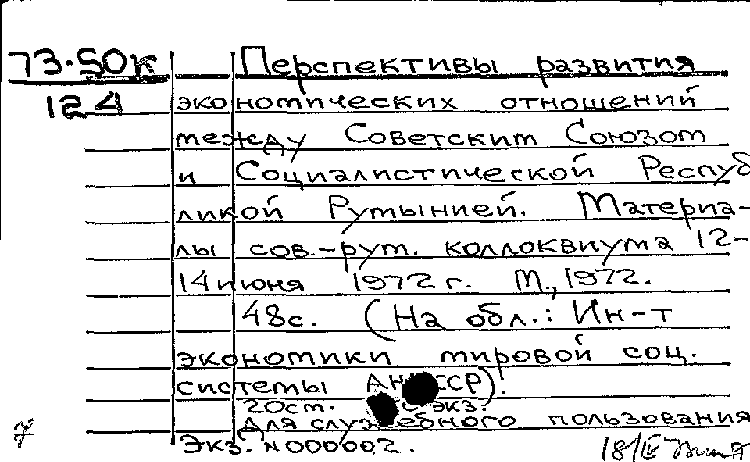 73-50к Перспективы развития
124 экономических отношений
между Советским Союзом
и Социалистической Респуб
ликой Румынией. Материа-
лы сов.-рум. коллоквиума 12-
14 июня 1972 г. М., 1972.
48с. (На обл.: Ин-т
экономики мировой соц.
системы АН СССР).
20см. экз.
Для служебного пользования
Экз. N000002.
18/IV